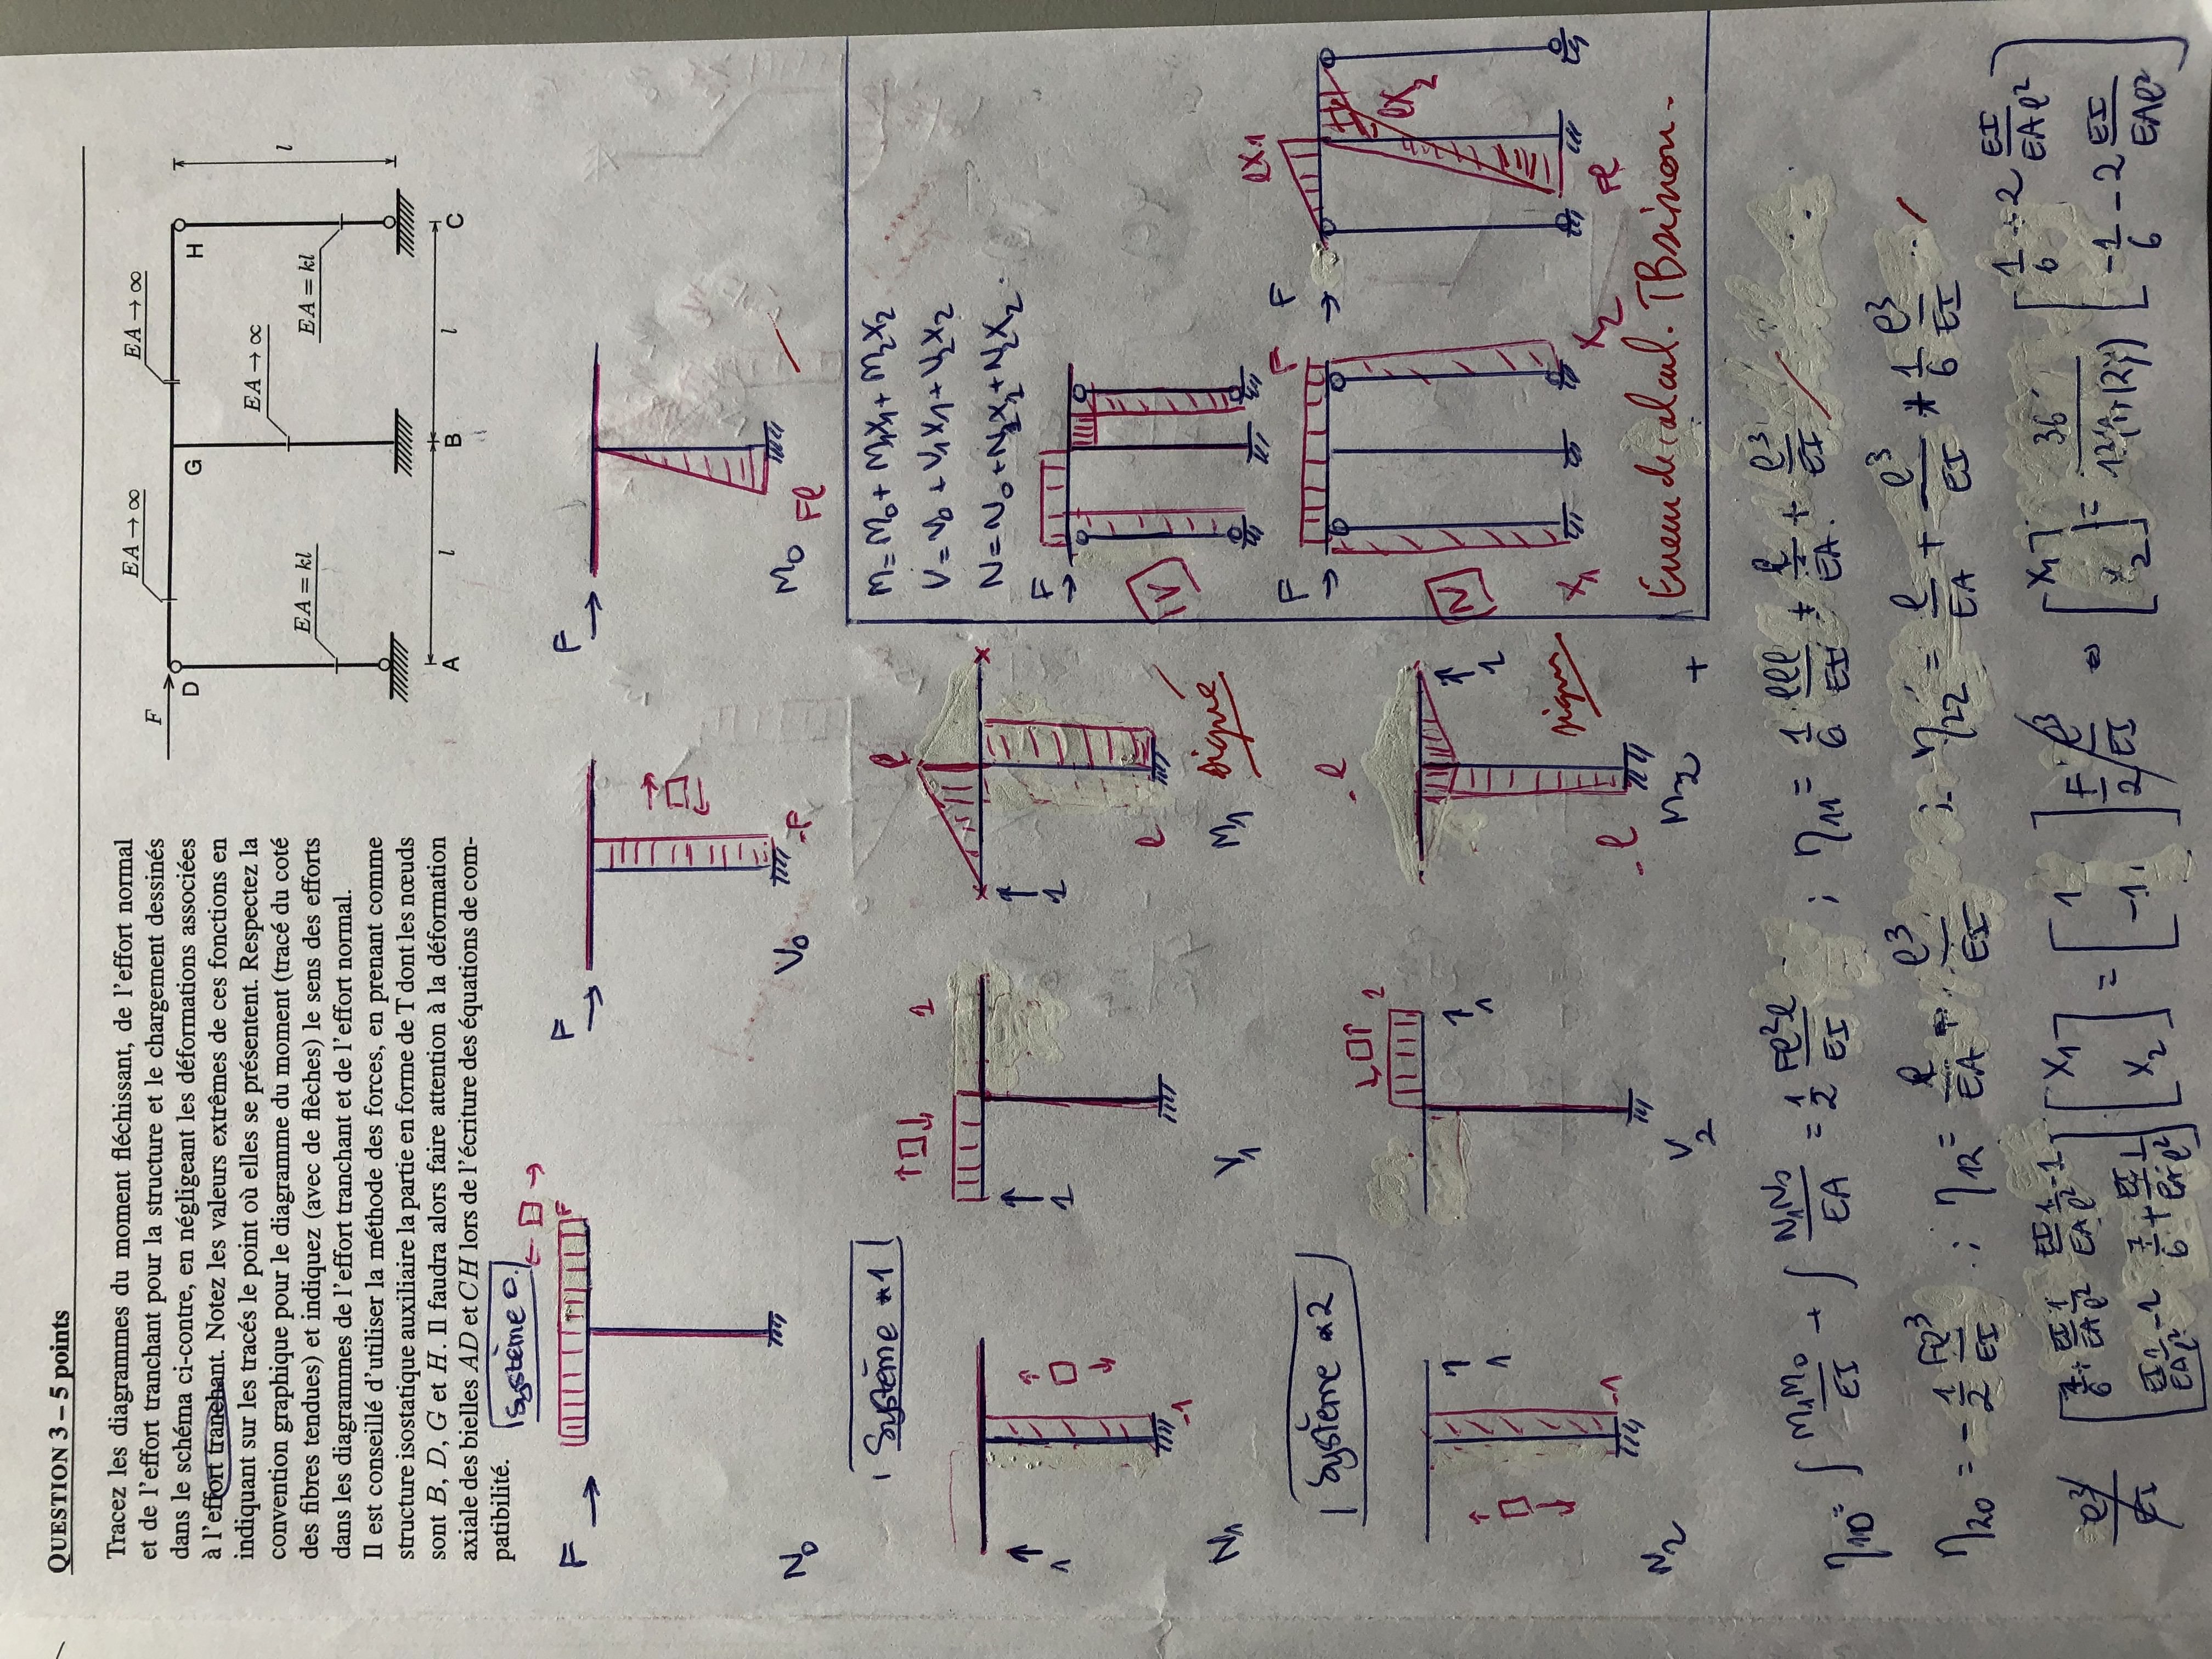 QUESTION 3 – 5 points
Tracez les diagrammes du moment fléchissant, de l'effort normal
et de l'effort tranchant pour la structure et le chargement dessinés
dans le schéma ci-contre, en négligeant les déformations associées
à l'effort tranchant. Notez les valeurs extrêmes de ces fonctions en
indiquant sur les tracés le point où elles se présentent. Respectez la
convention graphique pour le diagramme du moment (tracé du coté
des fibres tendues) et indiquez (avec de flèches) le sens des efforts
dans les diagrammes de l'effort tranchant et de l'effort normal.
Il est conseillé d'utiliser la méthode des forces, en prenant comme
structure isostatique auxiliaire la partie en forme de T dont les nœuds
sont B, D, G et H. Il faudra alors faire attention à la déformation
axiale des bielles AD et CH lors de l'écriture des équations de com-
patibilité.
F
EA → ∞
EA → ∞
D
G
H
EA = kl
EA → ∞
EA = kl
l
A
B
C
l
l
Système 0
F
F
N₀
F
-F
V₀
F
M₀
Fl
Système *1
1
N₁
-1
1
1
V₁
1
l
l
M₁
signe
Système *2
1
N₂
-1
1
1
V₂
-l
-l
1
M₂
signe
M = M₀ + M₁X₁ + M₂X₂
V = V₀ + V₁X₁ + V₂X₂
N = N₀ + N₁X₁ + N₂X₂
F
V
F
F
N
X₁
X₂
F
lX₁
lX₂
Fl
Erreur de calcul. TB sinon.
η₁₀ = ∫ M₁M₀/EI + ∫ N₁N₀/EA = 1/2 Fl²l/EI ; η₁₁ = 1/6 lll/EI + l/EA + l³/EI
η₂₀ = - 1/2 Fl³/EI ; η₁₂ = l/EA - l³/EI ; η₂₂ = l/EA + l³/EI + 1/6 l³/EI
[X₁ X₂] = [1 -1] F/2 l³/EI